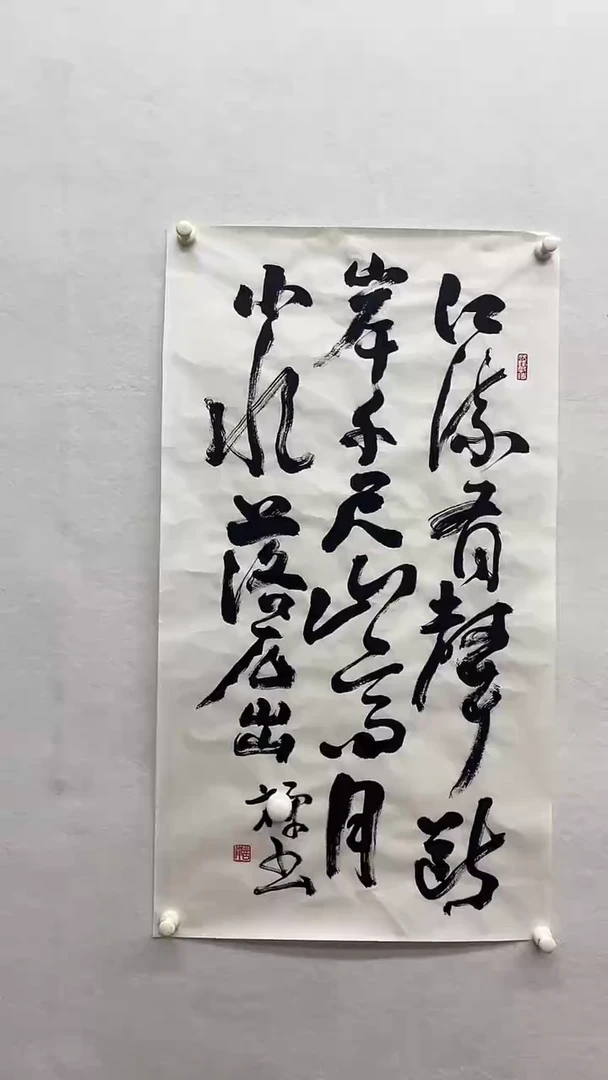 江流有聲斷
岸千尺山高月
小水落石出
书